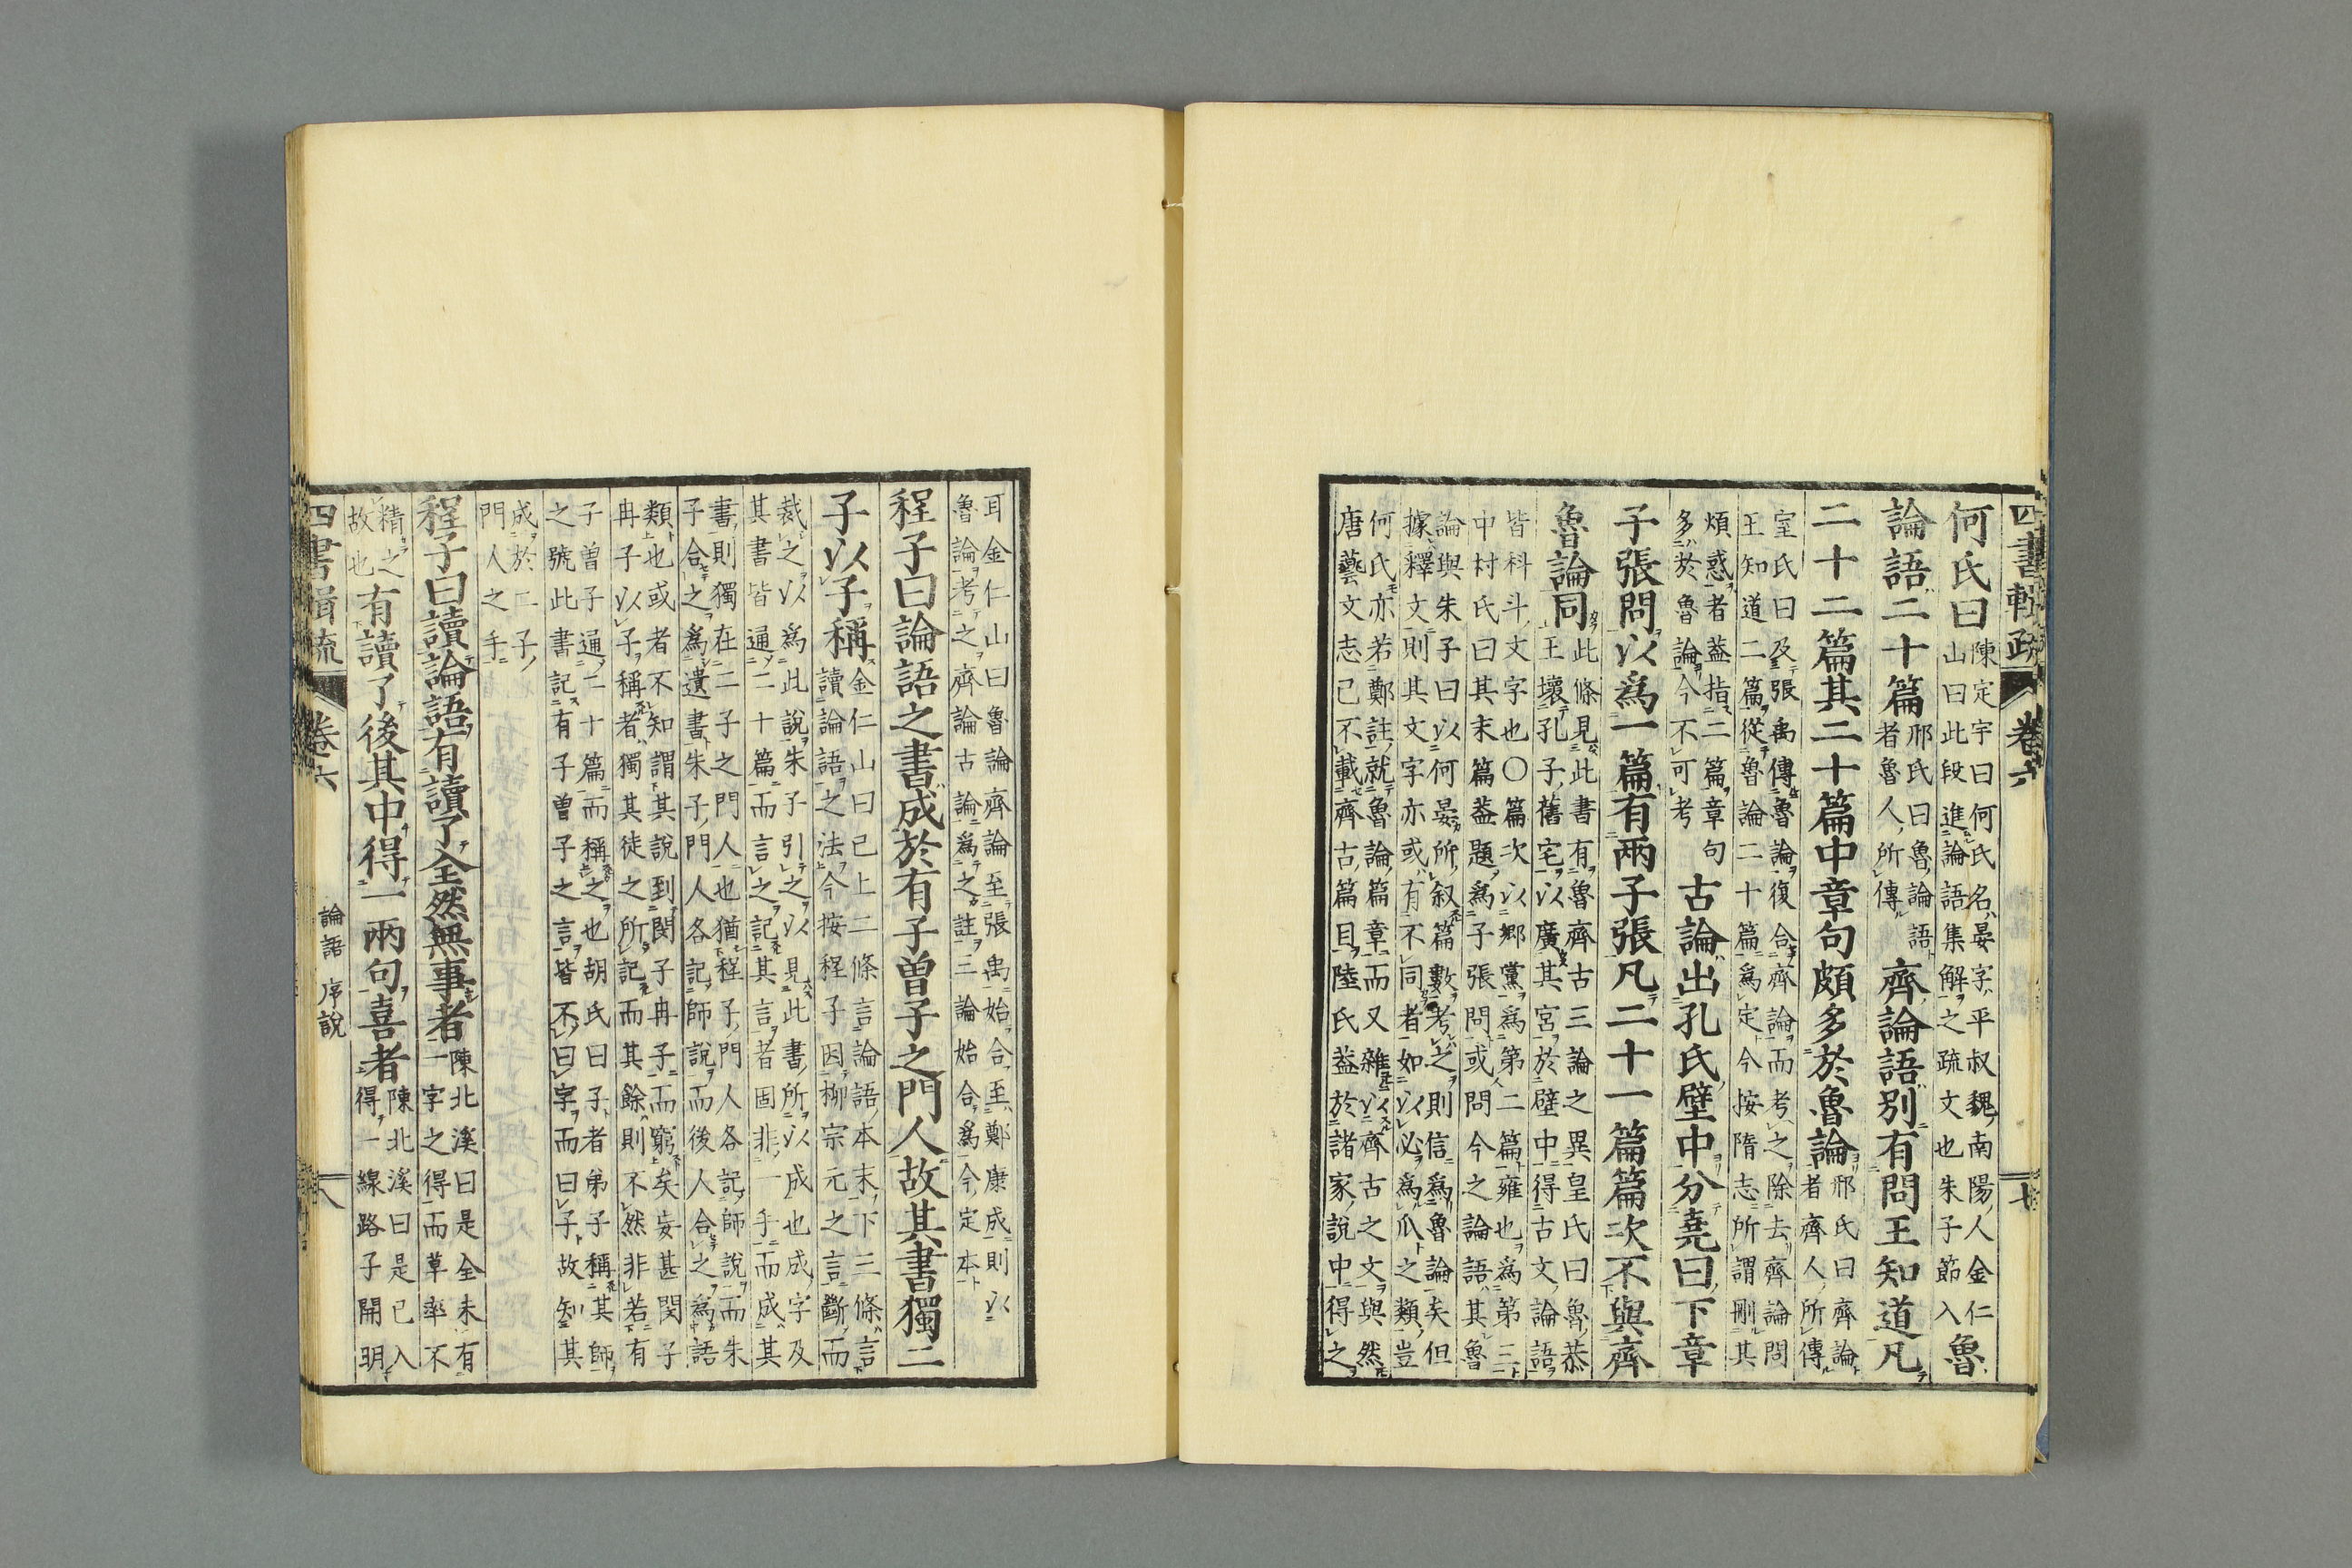 四書輯疏 卷六 七
何氏曰
陳定宇曰何氏名晏字平叔魏南陽人金仁
山曰此段進論語集解之疏文也朱子節入
魯
論語二十篇
邢氏曰魯論語
者魯人所傳
齊論語別有問王知道凡
二十二篇其二十篇中章句頗多於魯論
邢氏曰齊論
者齊人所傳
室氏曰及張禹傳魯論復合齊論而考之除去齊論問
王知道二篇從魯論二十篇爲定今按隋志所謂刪其
煩惑者蓋指二篇章句
多於魯論今不可考
古論出孔氏壁中分堯曰下章
子張問以爲一篇有兩子張凡二十一篇篇次不與齊
魯論同
此條見此書有魯齊古三論之異皇氏曰魯恭
王壞孔子舊宅以廣其宮於壁中得古文論語
皆科斗文字也○篇次以鄉黨爲第二篇雍也爲第三
中村氏曰其末篇蓋題爲子張問或問今之論語其魯
論與朱子曰以何晏所叙篇數考之則信爲魯論矣但
據釋文則其文字亦或有不同者如以必爲瓜之類豈
何氏亦若鄭註就魯論篇章而又雜以齊古之文與然
唐藝文志已不載齊古篇目陸氏蓋於諸家說中得之
耳金仁山曰魯論齊論至張禹始合至鄭康成則以
魯論考之齊論古論爲之註三論始合爲今定本
程子曰論語之書成於有子曽子之門人故其書獨二
子以子稱
金仁山曰已上二條言論語本末下三條言
讀論語之法今按程子因柳宗元之言斷而
裁之以爲此說朱子引之以見此書所以成也成字及
其書皆通二十篇而言之記其言者固非一手而成其
書則獨在二子之門人也猶程子門人各記師說而朱
子合之爲遺書朱子門人各記師說而後人合之爲語
類也或者不知謂其說到閔子冉子而窮矣妄甚閔子
冉子以子稱者獨其徒之所記而其餘則不然非若有
子曽子通二十篇而稱之也胡氏曰子者弟子稱其師
之號此書記有子曽子之言皆不曰字而曰子故知其
成於二子
門人之手
程子曰讀論語有讀了全然無事者
陳北溪曰是全未有
一字之得而草率不
精之
故也
有讀了後其中得一兩句喜者
陳北溪曰是已入
得一線路子開明
四書輯疏 卷六 論語 序說 八